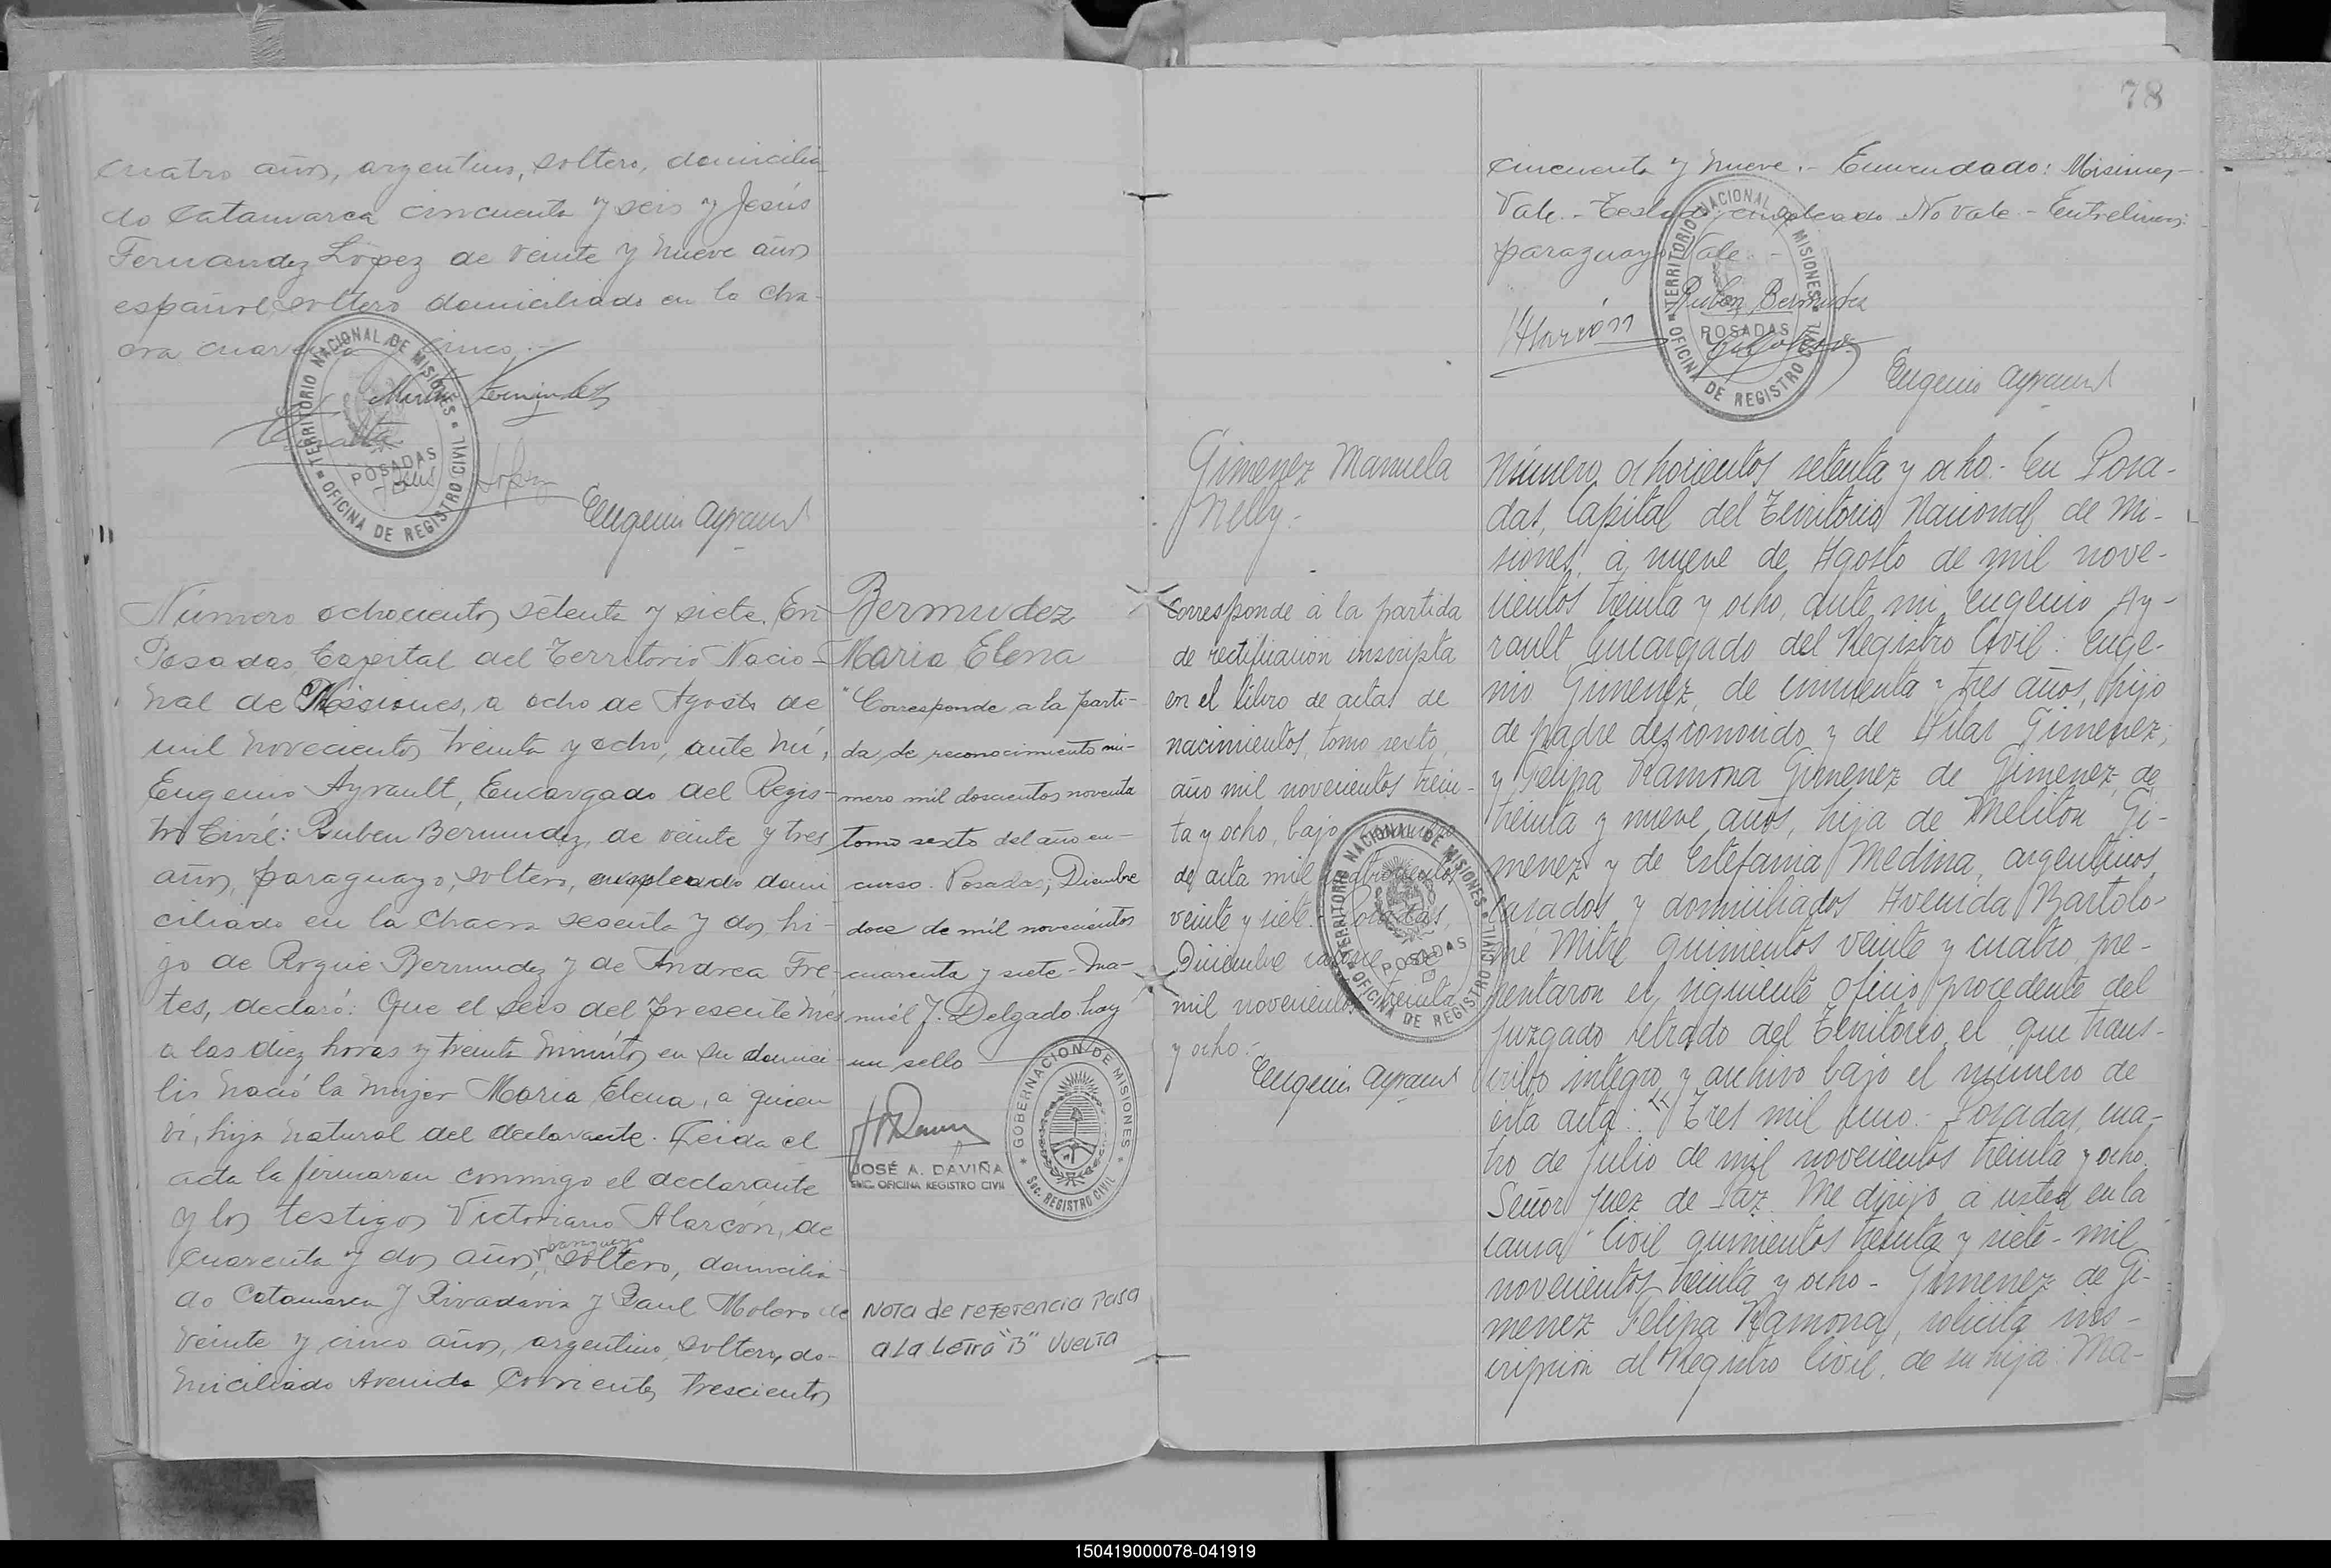 cuatro años, argentino, soltero, domicilia-
do Catamarca cincuenta y seis y Jesús
Fernandez López de veinte y nueve años
español, soltero domiciliado en la cha-
cra cuarenta cinco.-
TERRITORIO NACIONAL DE MISIONES
POSADAS
OFICINA DE REGISTRO CIVIL
Eugenio Ayrault
Número ochocientos setenta y siete. En
Posadas, Capital del Territorio Nacio-
nal de Misiones, a ocho de Agosto de
mil novecientos treinta y ocho, ante mí,
Eugenio Ayrault, Encargado del Regis-
tro Civil: Ruben Bermudez, de veinte y tres
años, paraguayo, soltero, empleado domi
ciliado en la Chacra sesenta y dos, hi-
jo de Roque Bermudez y de Andrea Fre-
tes, declaró: Que el seis del presente mes
a las diez horas y treinta minutos en su domici-
lio nació la mujer Maria Elena, a quien
ví, hija natural del declarante. Leida el
acta la firmaron conmigo el declarante
y los testigos Victoriano Alarcón, de
cuarenta y dos años, paraguayo soltero, domicilia-
do Catamarca y Rivadavia y Raul Molero de
veinte y cinco años, argentino, soltero, do-
miciliado Avenida Corrientes trescientos
Bermudez
Maria Elena
"Corresponde a la parti-
da de reconocimiento nú-
mero mil doscientos noventa
tomo sexto del año en-
curso. Posadas, Diciembre
doce de mil novecientos
cuarenta y siete - Ma-
nuel J. Delgado. hay
un sello
GOBERNACION DE MISIONES
Sec. REGISTRO CIVIL
JOSÉ A. DAVIÑA
ENC. OFICINA REGISTRO CIVIL
Nota de referencia pasa
a la letra "B" vuelta
78
cincuenta y nueve.- Enmendado: Misiones-
Vale.- Testado: empleado No Vale - Entrelineas:
paraguayo Vale.-
Ruben Bermudez
Alarcón
TERRITORIO NACIONAL DE MISIONES
POSADAS
OFICINA DE REGISTRO CIVIL
Eugenio Ayrault
Gimenez Manuela
Nelly.-
Corresponde á la partida
de rectificación inscripta
en el libro de actas de
nacimientos, tomo sexto,
año mil novecientos trein-
ta y ocho, bajo número
de acta mil cuatrocientos
veinte y siete.- Posadas,
Diciembre de
mil novecientos treinta
y ocho.-
Eugenio Ayrault
TERRITORIO NACIONAL DE MISIONES
POSADAS
OFICINA DE REGISTRO CIVIL
Número ochocientos setenta y ocho.- En Posa-
das, Capital del Territorio Nacional de Mi-
siones, á nueve de Agosto de mil nove-
cientos treinta y ocho, ante mi Eugenio Ay-
rault Encargado del Registro Civil: Euge-
nio Gimenez, de cincuenta y tres años, hijo
de padre desconocido y de Pilar Gimenez,
y Felipa Ramona Gimenez de Gimenez, de
treinta y nueve años, hija de Meliton Gi-
menez y de Estefania Medina, argentinos,
casados y domiciliados Avenida Bartolo-
mé Mitre quinientos veinte y cuatro, pre-
sentaron el siguiente oficio procedente del
juzgado letrado del Territorio, el que trans-
cribo integro y archivo bajo el número de
esta acta: "Tres mil uno.- Posadas, cua-
tro de Julio de mil novecientos treinta y ocho.
Señor Juez de Paz. Me dirijo á usted en la
causa Civil quinientos treinta y siete - mil
novecientos treinta y ocho - Gimenez de Gi-
menez Felipa Ramona, solicita ins-
cripción al Registro Civil, de su hija: Ma-
150419000078-041919